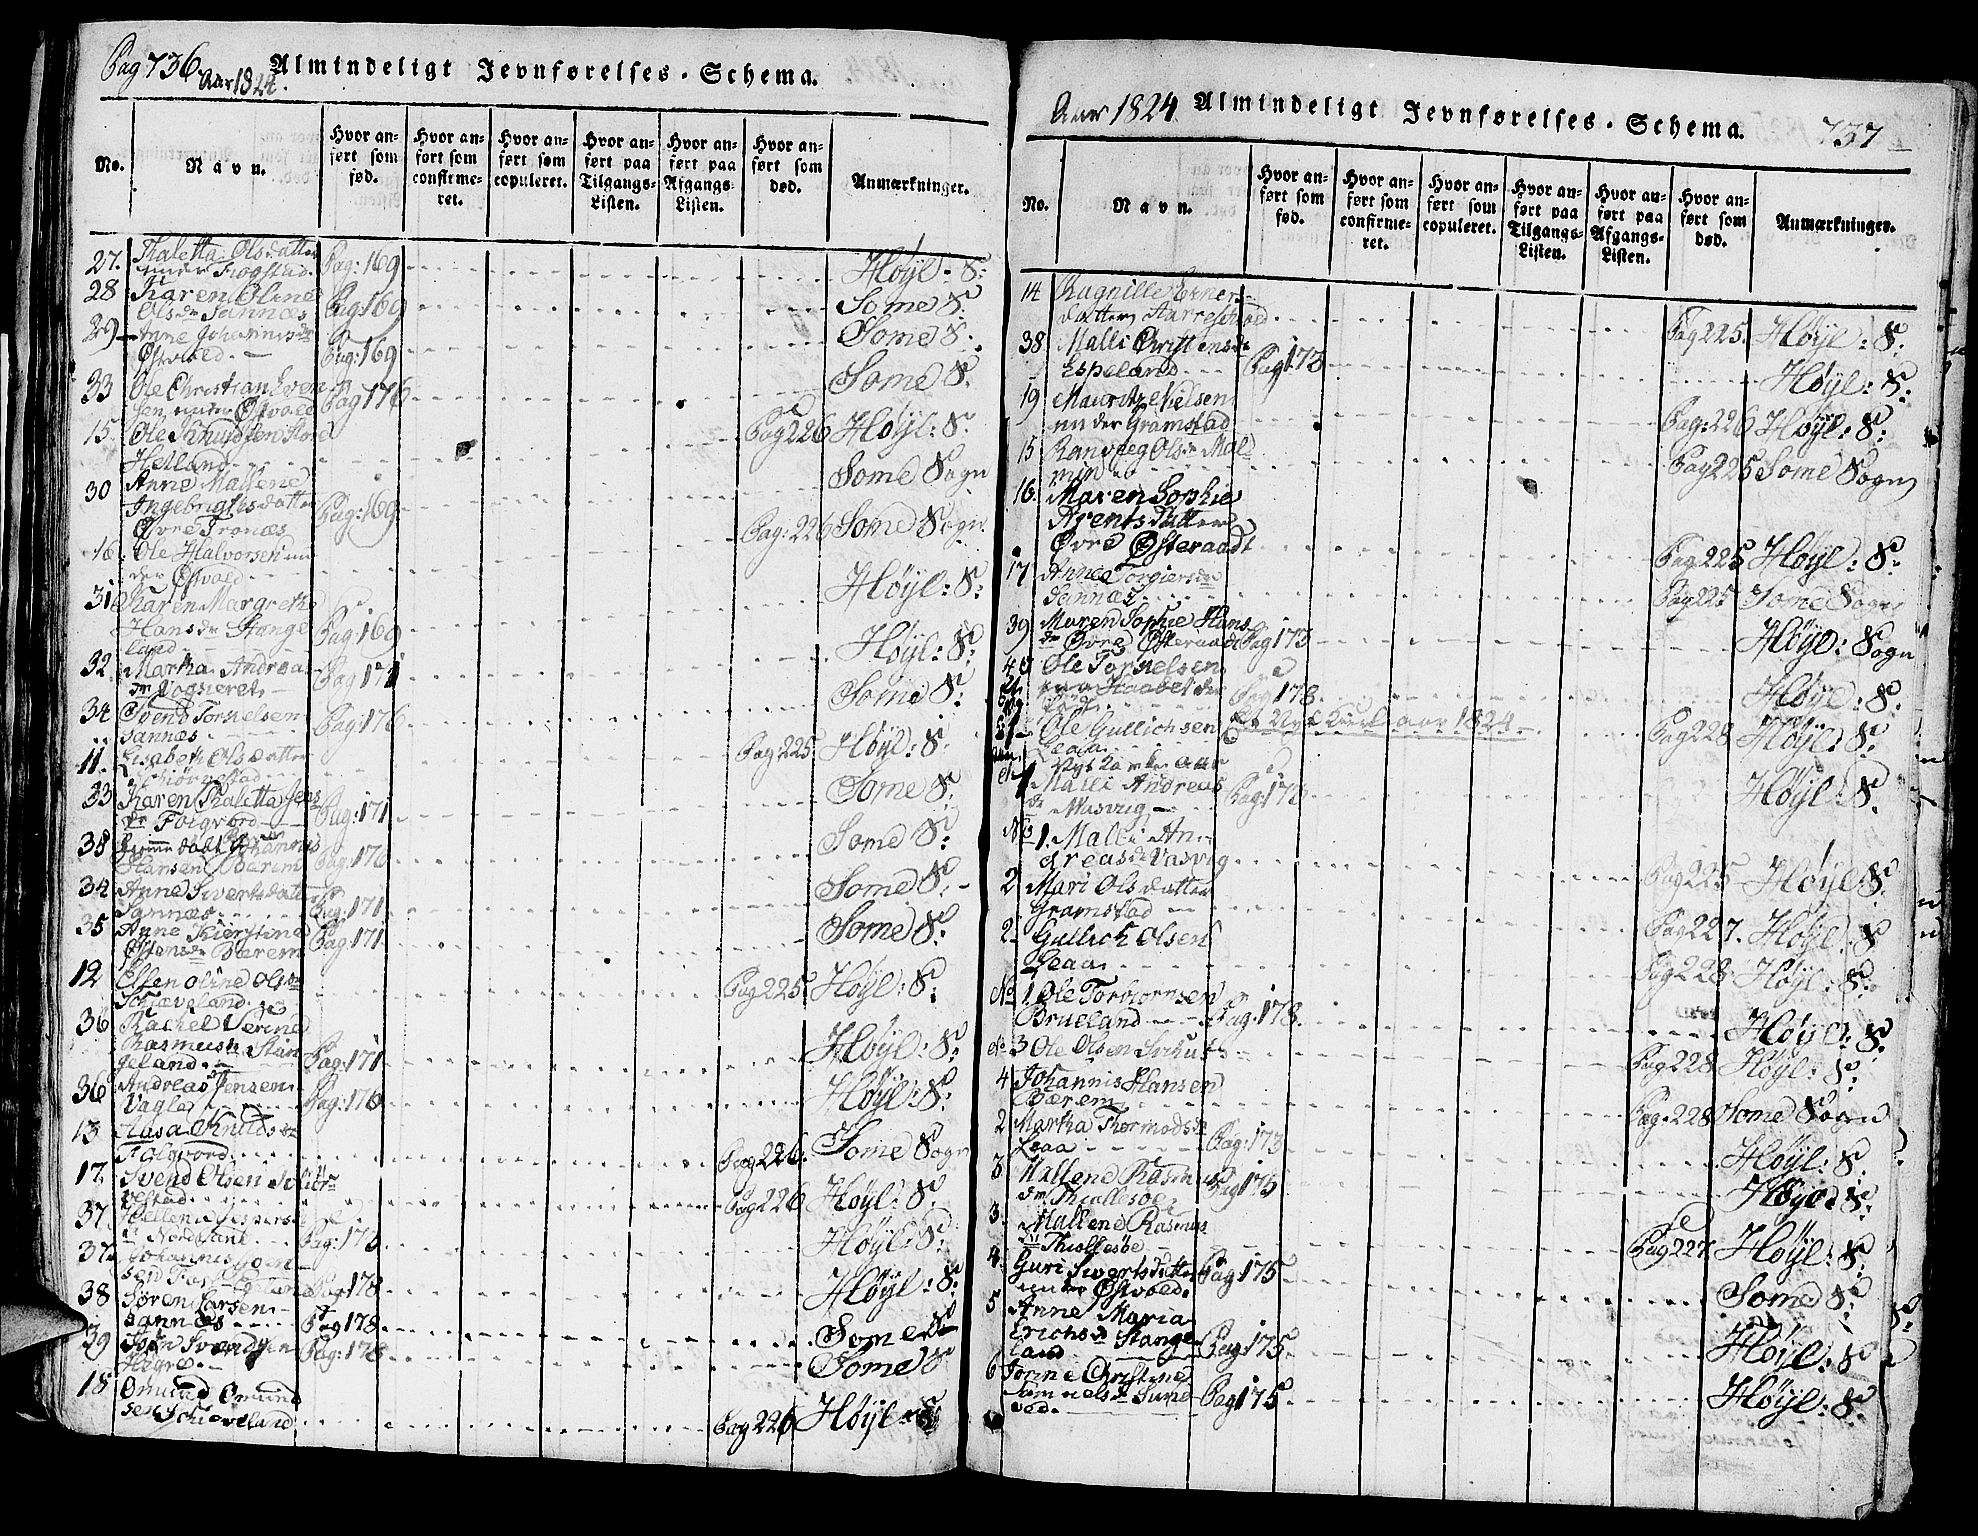 Pag 736 Aar 1824. Almindeligt Jevnførelses-Schema.
No. Navn. Hvor anført som fød. Hvor anført som confirmeret. Hvor anført som copuleret. Hvor anført paa Tilgangs-Listen. Hvor anført paa Afgangs-Listen. Hvor anført som død. Anmærkninger.
27. Thaletta Olsdatter
under Fogstad. Pag: 169 Høyl. S:
28 Karen Oline
Olsdr Sannæs Pag 169 Some S:
29 Anne Johannisdr
Østvold. Pag: 169 Some S:
33 Ole Christian Even
sen under Østvold Pag 176 Some S:
15. Ole Knudsen Store
Helland Pag 226 Høyl: S:
30 Anne Mallene
Ingebrigtsdatter
Øvre Tronæs Pag: 169 Some Sogn
16. Ole Halvorsen un
der Østvold Pag: 226 Some Sogn
31 Karen Margrethe
Hansdr Stange
land Pag: 169 Høyl: S:
32. Martha Andrea
Pag 171 Høyl: S:
34 Svend Tornelsen
Sannæs Pag: 176 Some S:
11. Lisabeth Olsdatter
Schiørnestad Pag 225 Høyl: S:
33 Karen Thaletta Jens
dr Folgvord Pag: 171 Some S:
35 Hansen Bærem Pag: 176 Some S:
34 Anne Sivertsdatter
Sannæs Pag: 171 Some S:
35 Anne Kierstine
Østensdr Bærem Pag: 171 Some S:
12 Elsen Oline Olsdr
Schiæveland Pag 225. Høyl: S:
36 Rachel Serine
Rasmusdr Stan
geland. Pag: 171 Høyl: S:
36 Andreas Jensen
Vagle Pag: 176 Høyl: S:
13 Aasa Knudsdr
Folgvord Pag 226. Some Sogn
17 Svend Olsen Schiør
nestad Pag 226 Høyl: S:
37. Hellene Jespers
dr Nordland Pag: 173 Høyl: S:
37 Johannis Jon
sen Pag 178 Høyl: S:
38 Søren Larsen
Sannæs Pag 178 Some S
39 Svendsen
Høgre Pag: 178 Some S
18 Omund Omund
sen Schiæveland Pag 226 Høyl: S
Aar 1824. Almindeligt Jevnførelses-Schema. 737
No. Navn. Hvor anført som fød. Hvor anført som confirmeret. Hvor anført som copuleret. Hvor anført paa Tilgangs-Listen. Hvor anført paa Afgangs-Listen. Hvor anført som død. Anmærkninger.
14 Ragnille Einers
datter Aarreschold Pag 225. Høyl: S:
38 Malli Christensdr
Espeland Pag 173 Høyl: S:
19 Mauritz Nielsen
under Gramstad Pag: 226 Høyl: S:
15 Ranveeg Olsdr Mal
min Pag 225 Some Sogn
16. Maren Sophie
Arentsdatter
Øvre Østeraadt Pag 225 Høyl: S:
17 Anne Torgiersdr
Sannæs Pag 225 Some Sogn
39 Maren Sophie Hans
dr Øvre Østeraadt Pag 173 Høyl: Sogn
40 Ole Tornelsen
Pag 178. Høyl: S:
Et Nyt Kuld aar 1824.
Ole Gullichsen
Leaa Pag 228 Høyl: S:
Nyt Aar
1 Malli Andreas
dr Masvig Pag: 173 Høyl: S:
No 1. Malli An
dreasdr Vasvig Pag 225 Høyl S:
2 Mari Olsdatter
Gramstad Pag 227. Høyl: S
2 Gullich Olsen
Leaa Pag 228 Høyl: S:
No 1 Ole Torbiørnsen
Brueland Pag: 178. Høyl: S:
No 3 Ole Olsen Schut Pag 228 Høyl: S:
4 Johannis Hansen
Bærem Pag. 228 Some Sogn
2 Martha Thormodsdr
Leaa Pag: 173 Høyl: S.
3 Mallene Rasmus
dr Thiellesøe Pag 175 Høyl: S:
3. Mallene Rasmus
dr Thiellesøe Pag 227. Høyl: S:
4. Guri Sivertsdatter
under Østvold. Pag 175 Some S:
5 Anne Maria
Erichsdr Stange
land Pag 175. Høyl: S
6 Jonne Christine
Samuelsdr Sune
vod. Pag 175 Høyl: S: